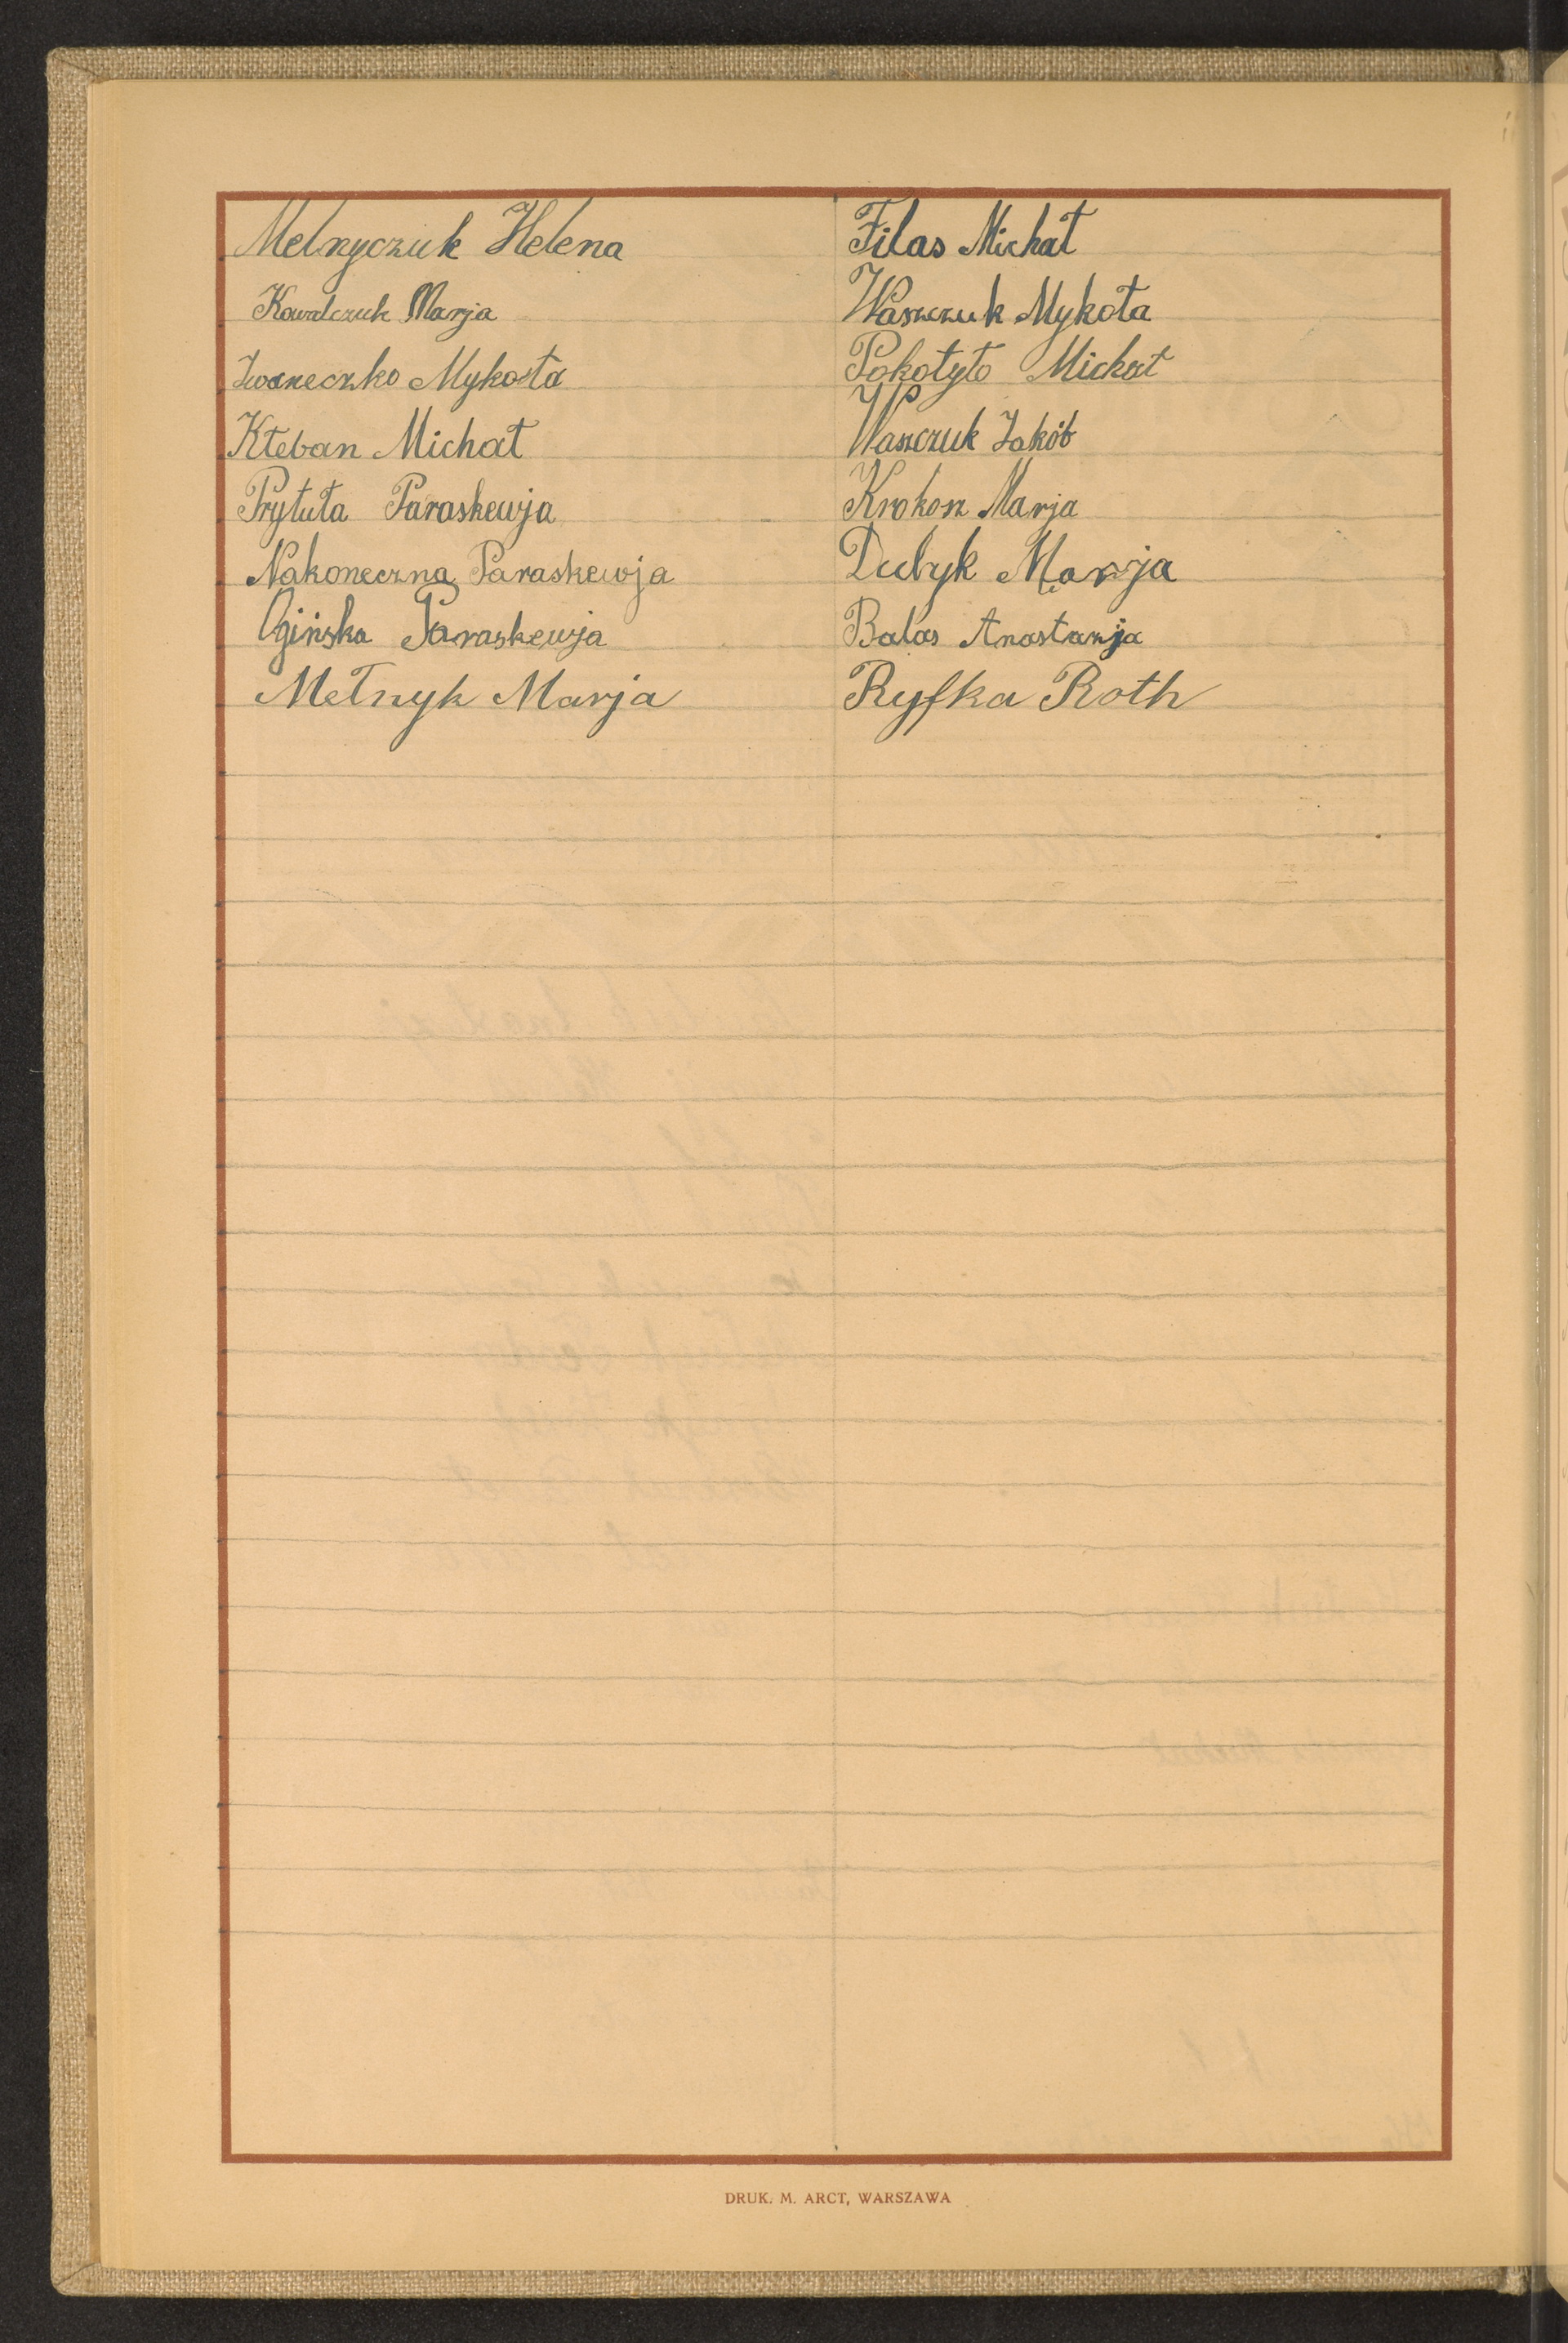 Melnyczuk Helena
Kowalczuk Marja
Iwaneczko Mykoła
Kłeban Michał
Prytuła Paraskewja
Nakoneczna Paraskewja
Ogińska Paraskewja
Mełnyk Marja
Filas Michał
Waszczuk Mykoła
Pokotyło Michał
Waszczuk Jakób
Krokosz Marja
Dubyk Marja
Balas Anastazja
Ryfka Roth
DRUK. M. ARCT, WARSZAWA